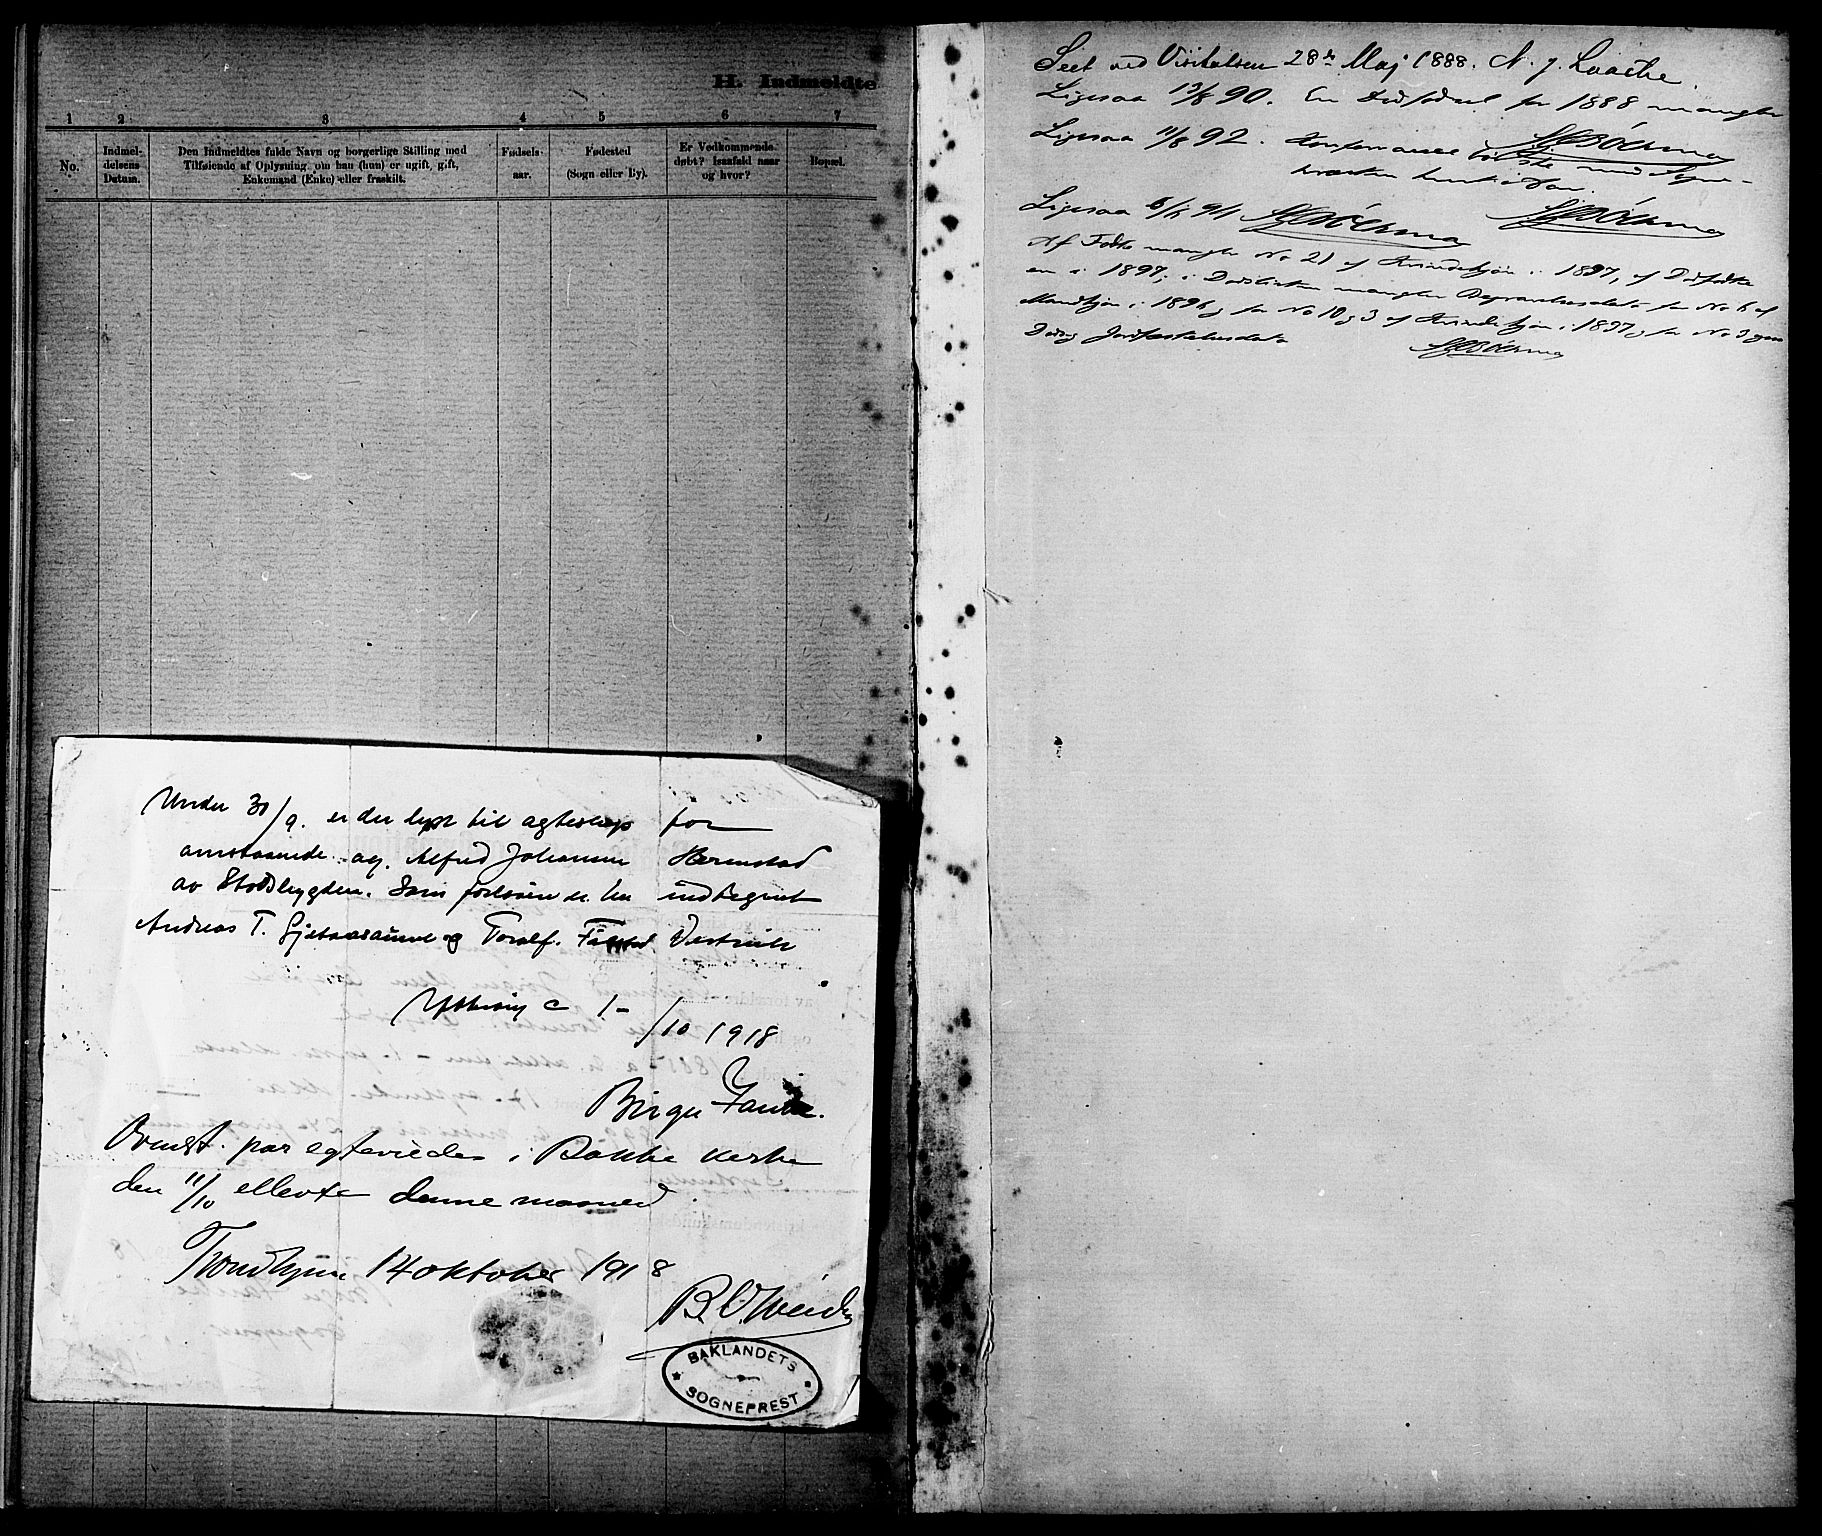 H. Indmeldte
1 2 3 4 5 6 7
No.
Indmel-
delsens
Datum.
Den Indmeldtes fulde Navn og borgerlige Stilling med
Tilføiende af Oplysning, om han (hun) er ugift, gift,
Enkemand (Enke) eller fraskilt.
Fødsels-
aar.
Fødested
(Sogn eller By).
Er Vedkommende
døbt? Isaafald naar
og hvor?
Bopæl.
Under 30/9. er der lyst til egteskap for
omstaaende og Alfred Johansen Hermstad
av Stadsbygden. Som forlovere er indtegnet
Andreas T. og Toralf Vestvik
1-/10 1918
Birger
Ovenst. par egteviedes i Bakke kirke
den 11/10 ellevte denne maaned
Trondhjem 14 oktober 1918
BAKLANDETS
SOGNEPREST
Seet ved Visitatsen 28de Maj 1888. N. J. Laache
Ligesaa 13/8 90. En Dødfødsel for 1888 mangler
Ligesaa 11/8 92. Konfirmand
Ligesaa 6/6 94
Af Fødte mangler No 21 af Kvindekjøn i 1897, af Dødfødte
en i 1897; i Dødslisten mangler Begravelsesdato for No 6 af
Mandkjøn i 1896, for No 10 og 3 af Kvindekjøn i 1897, for No 3
Jordfæstelsesdato